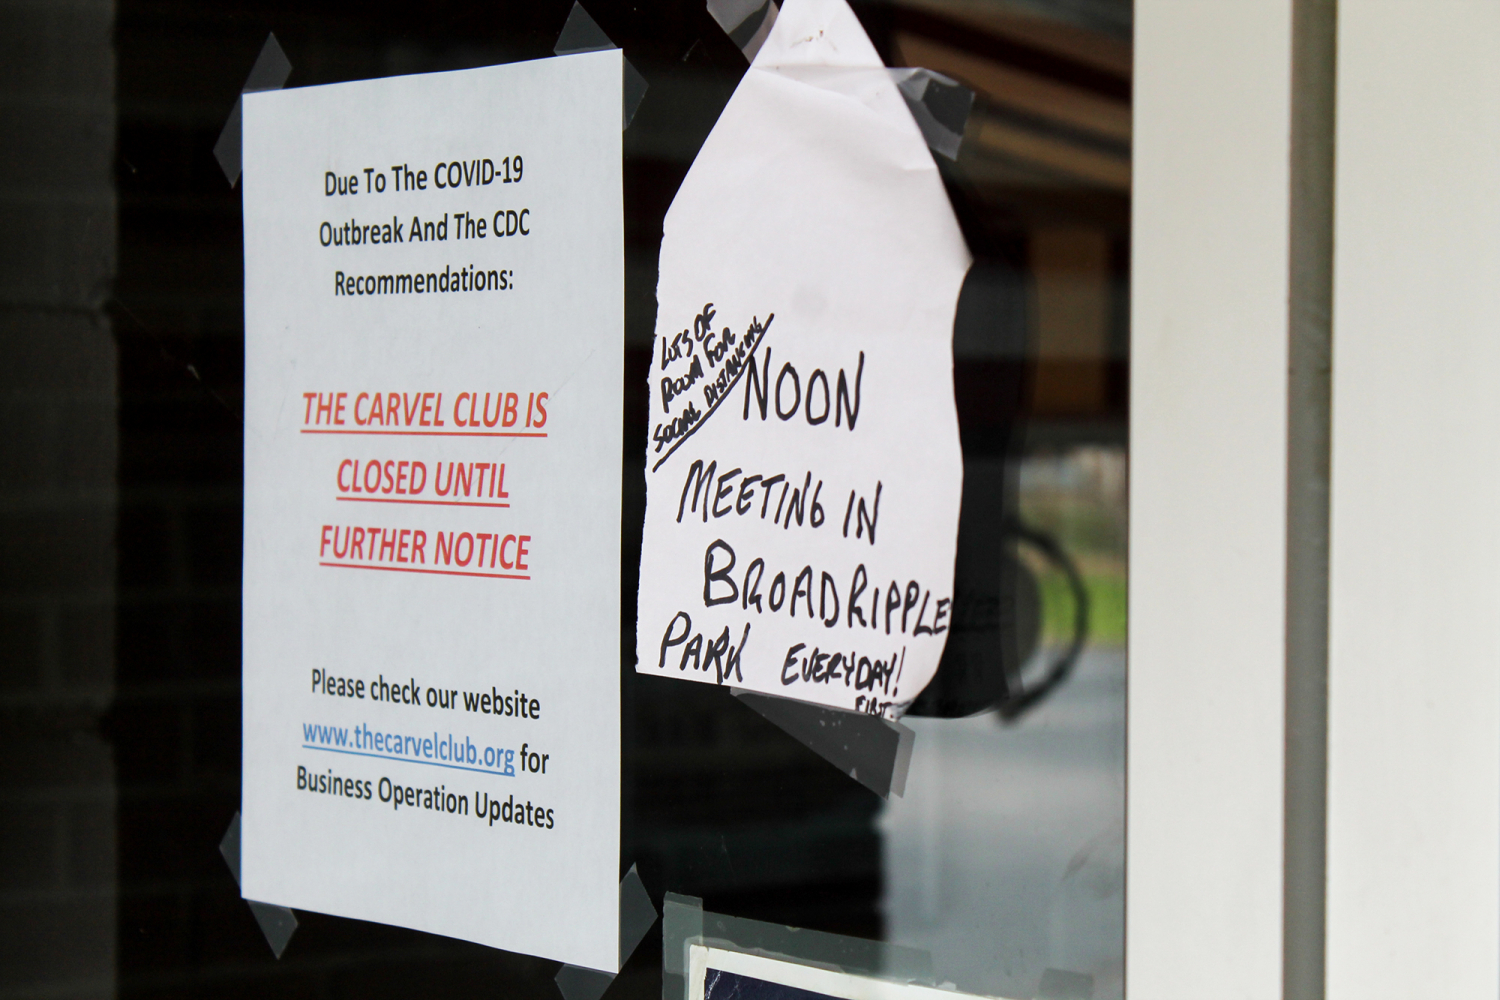 Due To The COVID-19
Outbreak And The CDC
Recommendations:
THE CARVEL CLUB IS
CLOSED UNTIL
FURTHER NOTICE
Please check our website
www.thecarvelclub.org for
Business Operation Updates
LOTS OF
ROOM FOR
SOCIAL DISTANCING
NOON
MEETING IN
BROADRIPPLE
PARK EVERYDAY!